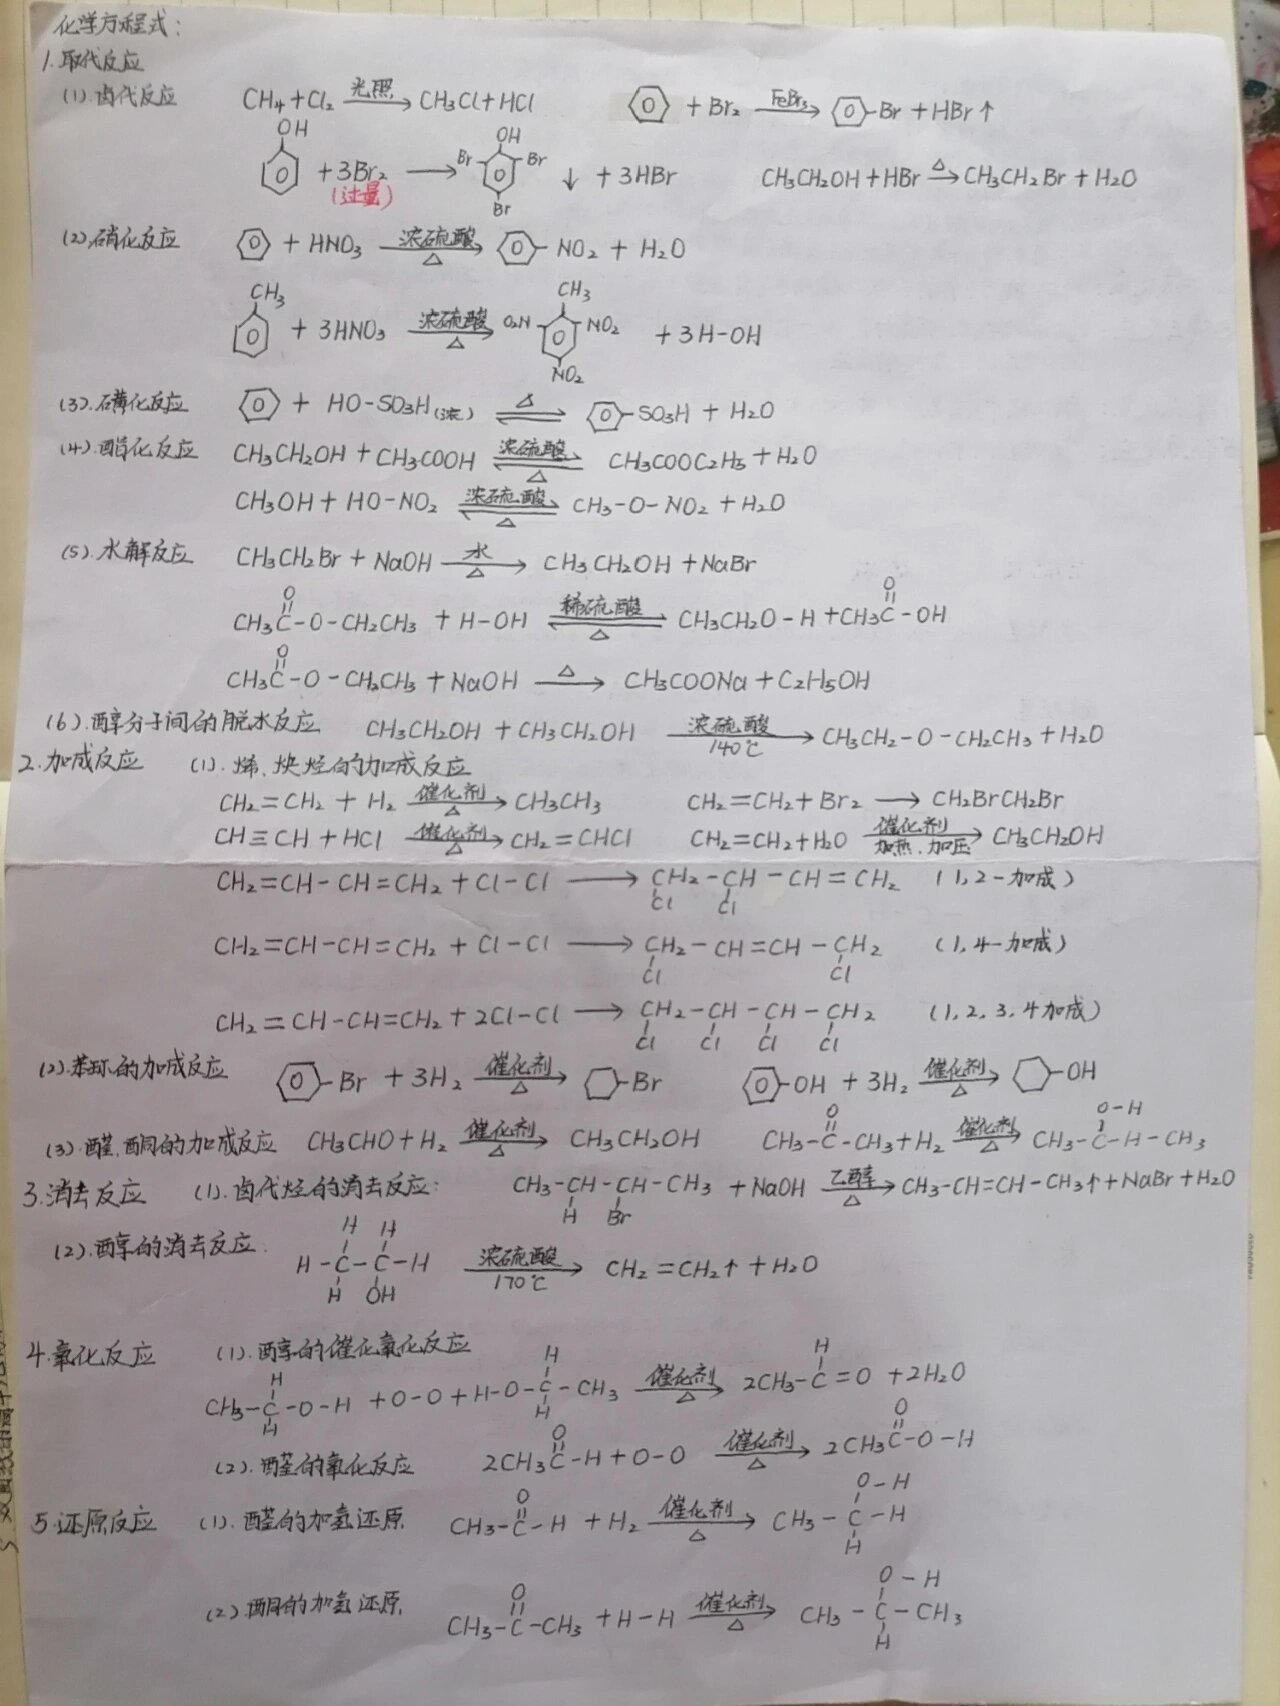 化学方程式:
1.取代反应
(1).卤代反应 CH4+Cl2 光照→ CH3Cl+HCl ⌬ + Br2 FeBr3→ ⌬-Br + HBr↑
OH OH
⌬ +3Br2 → Br- ⌬ -Br ↓ + 3HBr CH3CH2OH+HBr △→ CH3CH2Br+H2O
(过量) Br
(2).硝化反应 ⌬ + HNO3 浓硫酸→△ ⌬-NO2 + H2O
CH3 CH3
⌬ + 3HNO3 浓硫酸→△ O2N- ⌬ -NO2 + 3H-OH
NO2
(3).磺化反应 ⌬ + HO-SO3H(浓) △⇌ ⌬-SO3H + H2O
(4).酯化反应 CH3CH2OH+CH3COOH 浓硫酸⇌△ CH3COOC2H5+H2O
CH3OH+HO-NO2 浓硫酸⇌△ CH3-O-NO2+H2O
(5).水解反应 CH3CH2Br+NaOH 水→△ CH3CH2OH+NaBr
O O
CH3C-O-CH2CH3 + H-OH 稀硫酸⇌△ CH3CH2O-H+CH3C-OH
O
CH3C-O-CH2CH3+NaOH △→ CH3COONa+C2H5OH
(6).醇分子间的脱水反应 CH3CH2OH+CH3CH2OH 浓硫酸→140℃ CH3CH2-O-CH2CH3+H2O
2.加成反应 (1).烯、炔烃的加成反应
CH2=CH2+H2 催化剂→△ CH3CH3 CH2=CH2+Br2 → CH2BrCH2Br
CH≡CH+HCl 催化剂→△ CH2=CHCl CH2=CH2+H2O 催化剂→加热、加压 CH3CH2OH
CH2=CH-CH=CH2+Cl-Cl → CH2-CH-CH=CH2 (1,2-加成)
Cl Cl
CH2=CH-CH=CH2+Cl-Cl → CH2-CH=CH-CH2 (1,4-加成)
Cl Cl
CH2=CH-CH=CH2+2Cl-Cl → CH2-CH-CH-CH2 (1,2,3,4加成)
Cl Cl Cl Cl
(2).苯环的加成反应 ⌬-Br+3H2 催化剂→△ ⬡-Br ⌬-OH+3H2 催化剂→△ ⬡-OH
O O-H
(3).醛、酮的加成反应 CH3CHO+H2 催化剂→△ CH3CH2OH CH3-C-CH3+H2 催化剂→△ CH3-C-H-CH3
3.消去反应 (1).卤代烃的消去反应: CH3-CH-CH-CH3+NaOH 乙醇→△ CH3-CH=CH-CH3↑+NaBr+H2O
H Br
(2).醇的消去反应. H H
H-C-C-H 浓硫酸→170℃ CH2=CH2↑+H2O
H OH
4.氧化反应 (1).醇的催化氧化反应
H H H
CH3-C-O-H +O-O+H-O-C-CH3 催化剂→△ 2CH3-C=O +2H2O
H H
O O
(2).醛的氧化反应 2CH3C-H+O-O 催化剂→△ 2CH3C-O-H
O O-H
5.还原反应 (1).醛的加氢还原 CH3-C-H +H2 催化剂→△ CH3-C-H
H
O O-H
(2)酮的加氢还原 CH3-C-CH3+H-H 催化剂→△ CH3-C-CH3
H